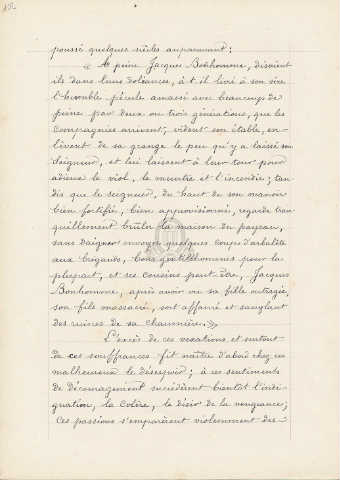 poussé quelques siècles auparavant :
« A peine Jacques Bonhomme, disaient
ils dans leurs doléances, a-t-il livré à son sire
l'humble pécule amassé avec beaucoup de
peine par deux ou trois générations, que les
compagnies arrivent, vident son étable, en-
lèvent de sa grange le peu qu'y a laissé son
Seigneur, et lui laissent à leur tour pour
adieux le viol, le meurtre et l'incendie; tan
dis que le seigneur, du haut de son manoir
bien fortifié, bien approvisionné, regarde tran
quillement brûler la maison du paysan,
sans daigner envoyer quelques coups d'arbalète
aux brigands, tous gentilshommes pour la
plupart, et ses cousins peut-être, Jacques
Bonhomme, après avoir vu sa fille outragée,
son fils massacré, sort affamé et sanglant
des ruines de sa chaumière. »
L'excès de ces vexations et surtout
de ces souffrances fit naître d'abord chez ces
malheureux le désespoir; à ces sentiments
de découragement succédèrent bientôt l'indi-
gnation, la colère, le désir de la vengeance;
Ces passions s'emparèrent violemment des